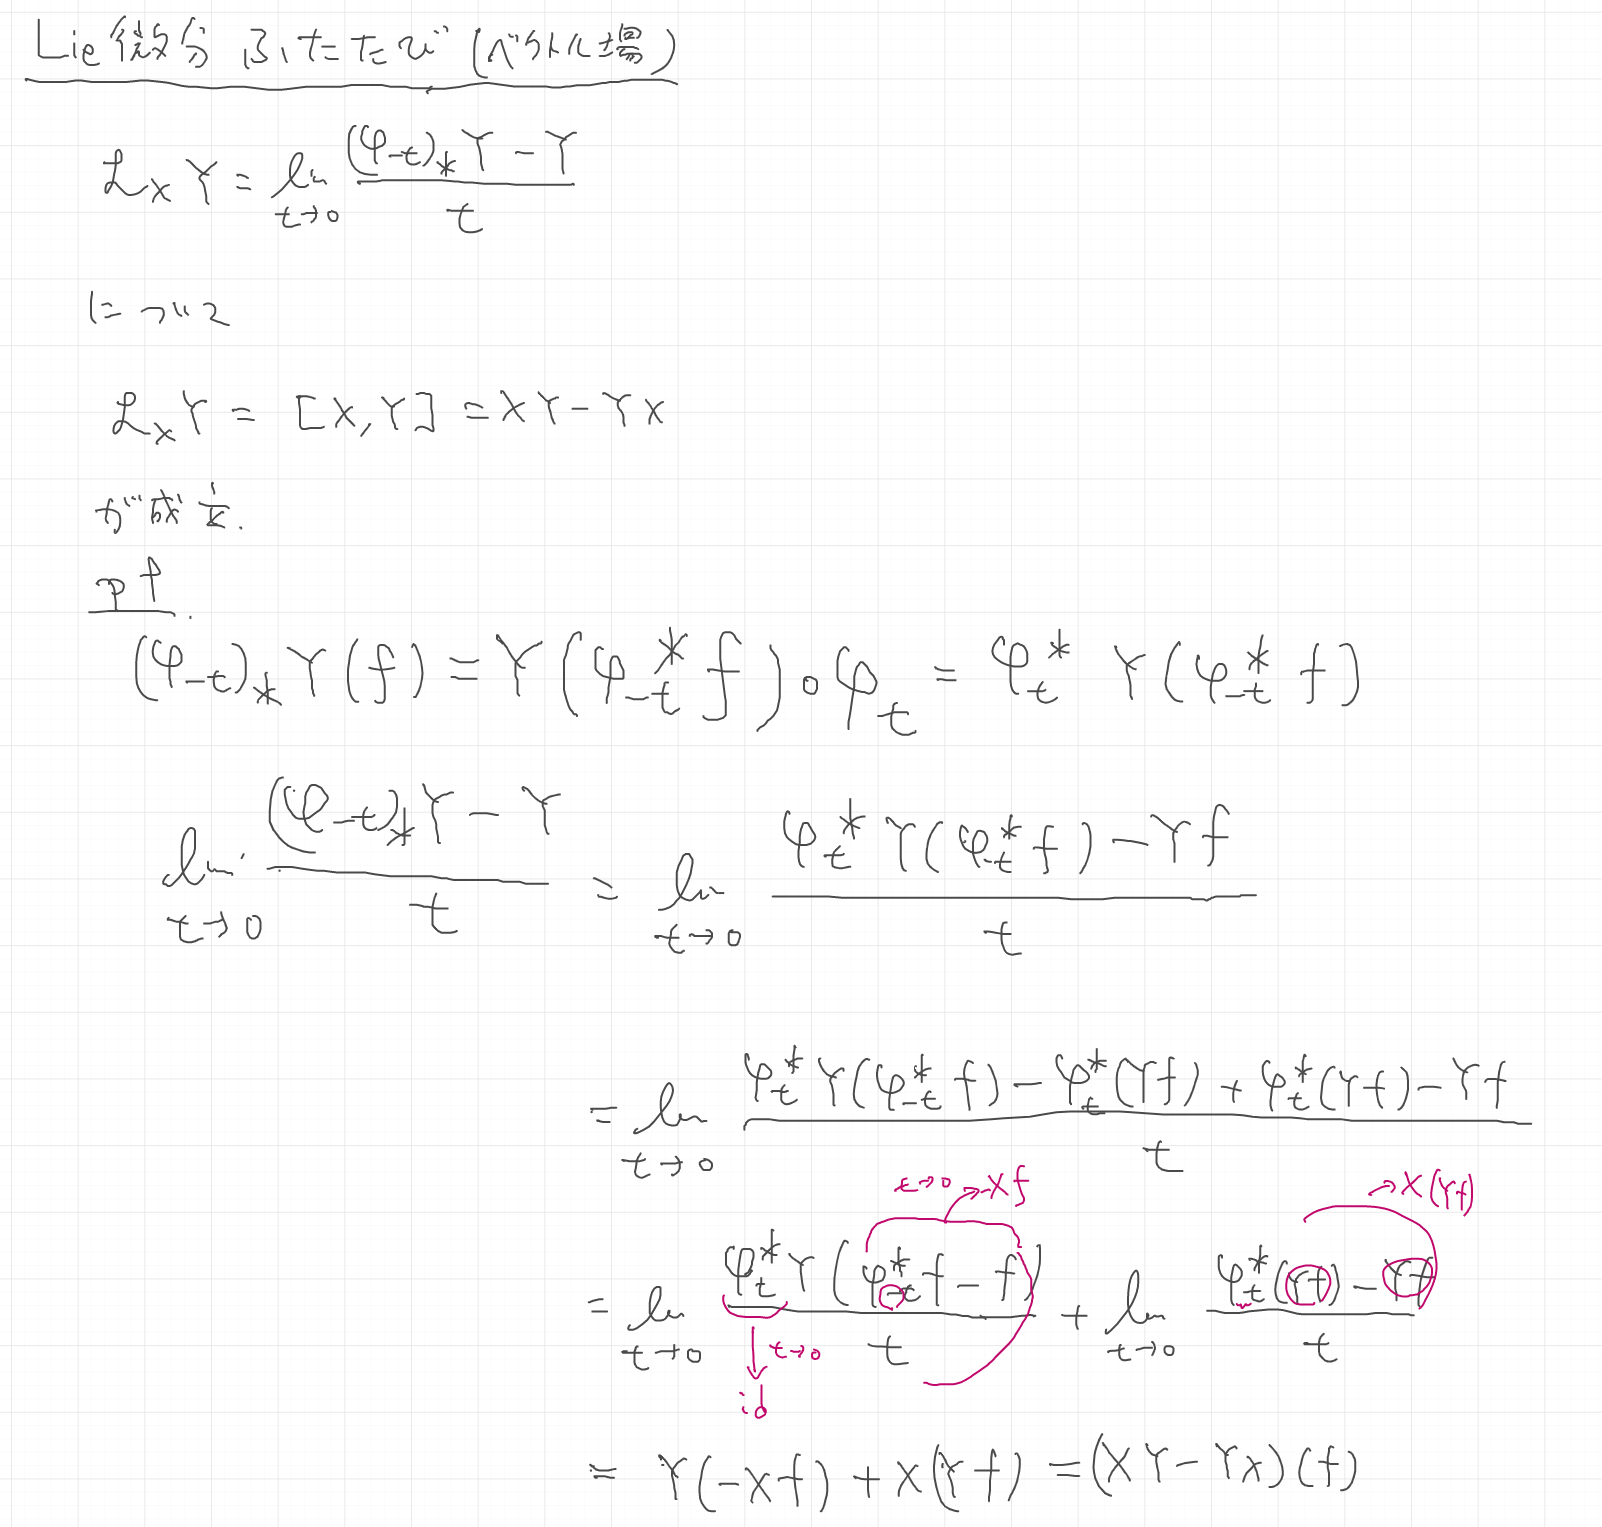 Lie微分 ふたたび (ベクトル場)
ℒ_X Y = lim_{t→0} ((φ_{-t})_* Y - Y) / t
について
ℒ_X Y = [X, Y] = XY - YX
が成立.
pf.
(φ_{-t})_* Y(f) = Y(φ_{-t}^* f)∘φ_t = φ_t^* Y(φ_{-t}^* f)
lim_{t→0} ((φ_{-t})_* Y - Y) / t = lim_{t→0} (φ_t^* Y(φ_{-t}^* f) - Yf) / t
= lim_{t→0} (φ_t^* Y(φ_{-t}^* f) - φ_t^*(Yf) + φ_t^*(Yf) - Yf) / t
t→0 → -Xf → X(Yf)
= lim_{t→0} φ_t^* Y(φ_{-t}^* f - f) / t + lim_{t→0} (φ_t^*(Yf) - Yf) / t
↓ t→0
id
= Y(-Xf) + X(Yf) = (XY - YX)(f)